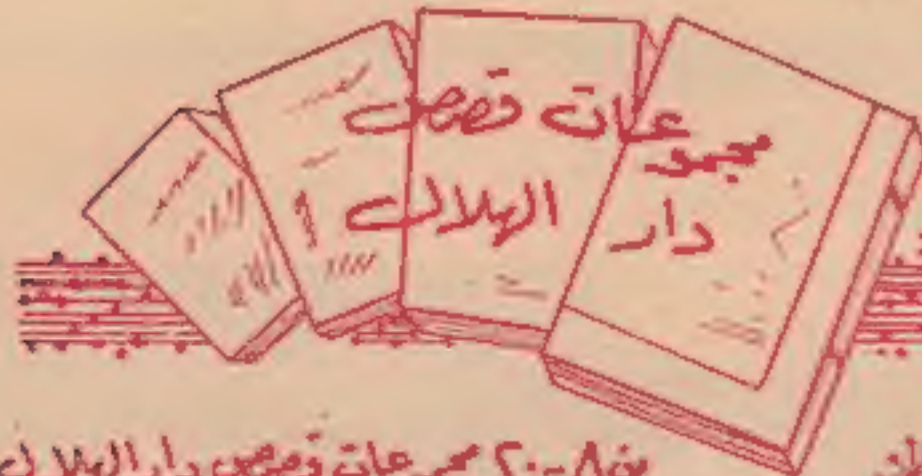 مجموعات قصص
دار الهلال
٢٠-٨ مجموعات قصص دار الهلال